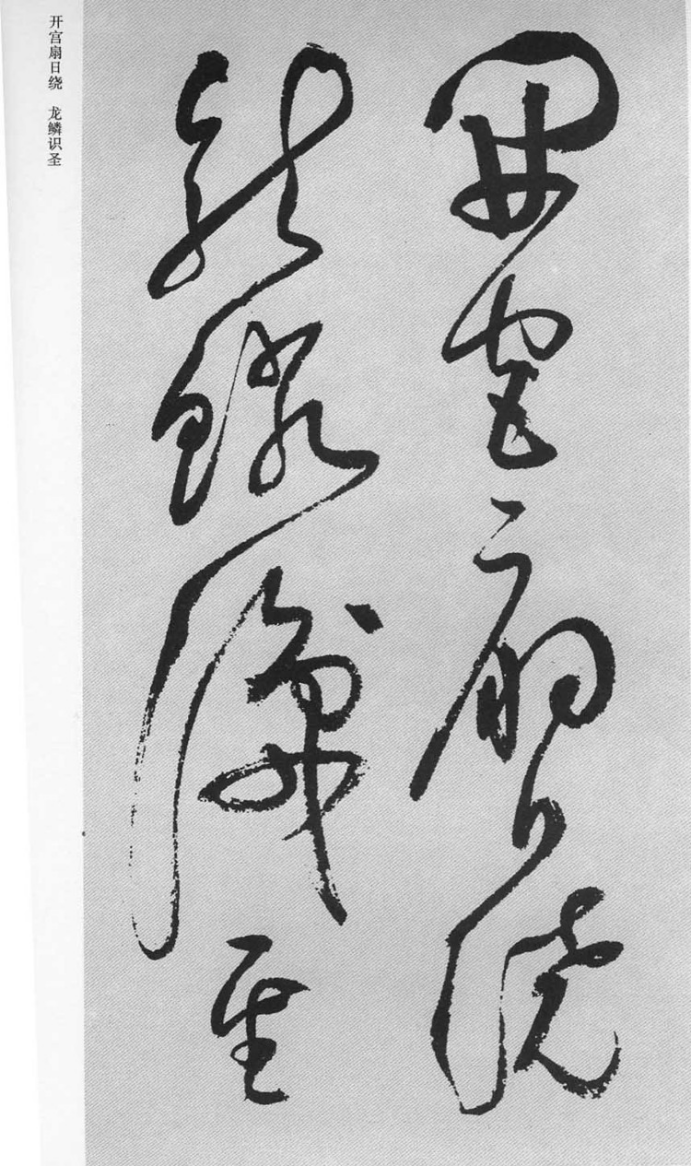 開宮扇日繞
龍鱗識聖
开宫扇日绕 龙鳞识圣